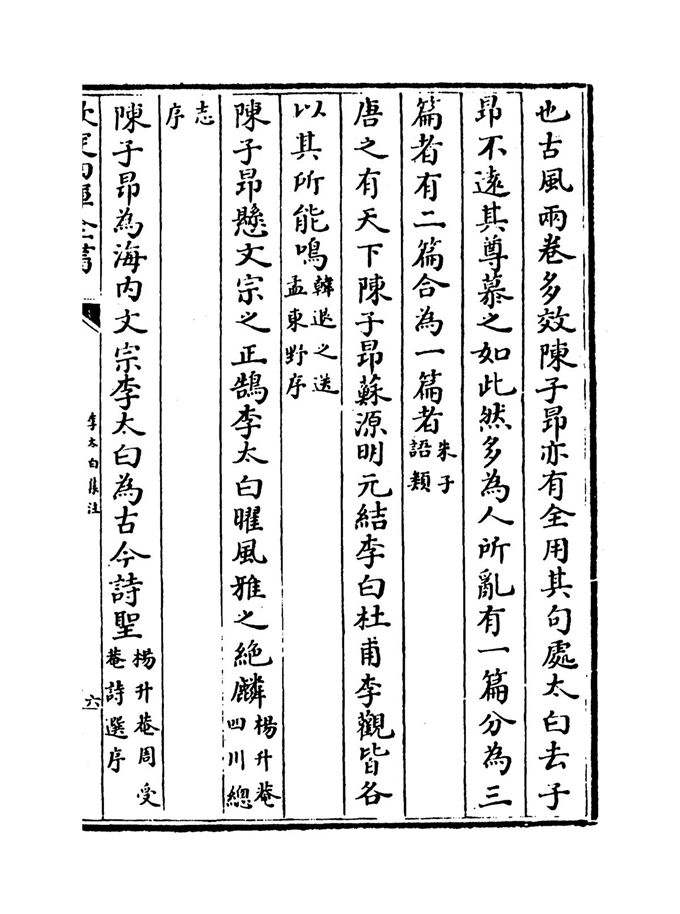 也古風兩卷多效陳子昂亦有全用其句處太白去子
昂不遠其尊慕之如此然多為人所亂有一篇分為三
篇者有二篇合為一篇者朱子語類
唐之有天下陳子昂蘇源明元結李白杜甫李觀皆各
以其所能鳴韓退之送孟東野序
陳子昂懸文宗之正鵠李太白曜風雅之絶麟楊升菴四川總
志序
陳子昂為海内文宗李太白為古今詩聖楊升菴周受菴詩選序
李太白集注
六